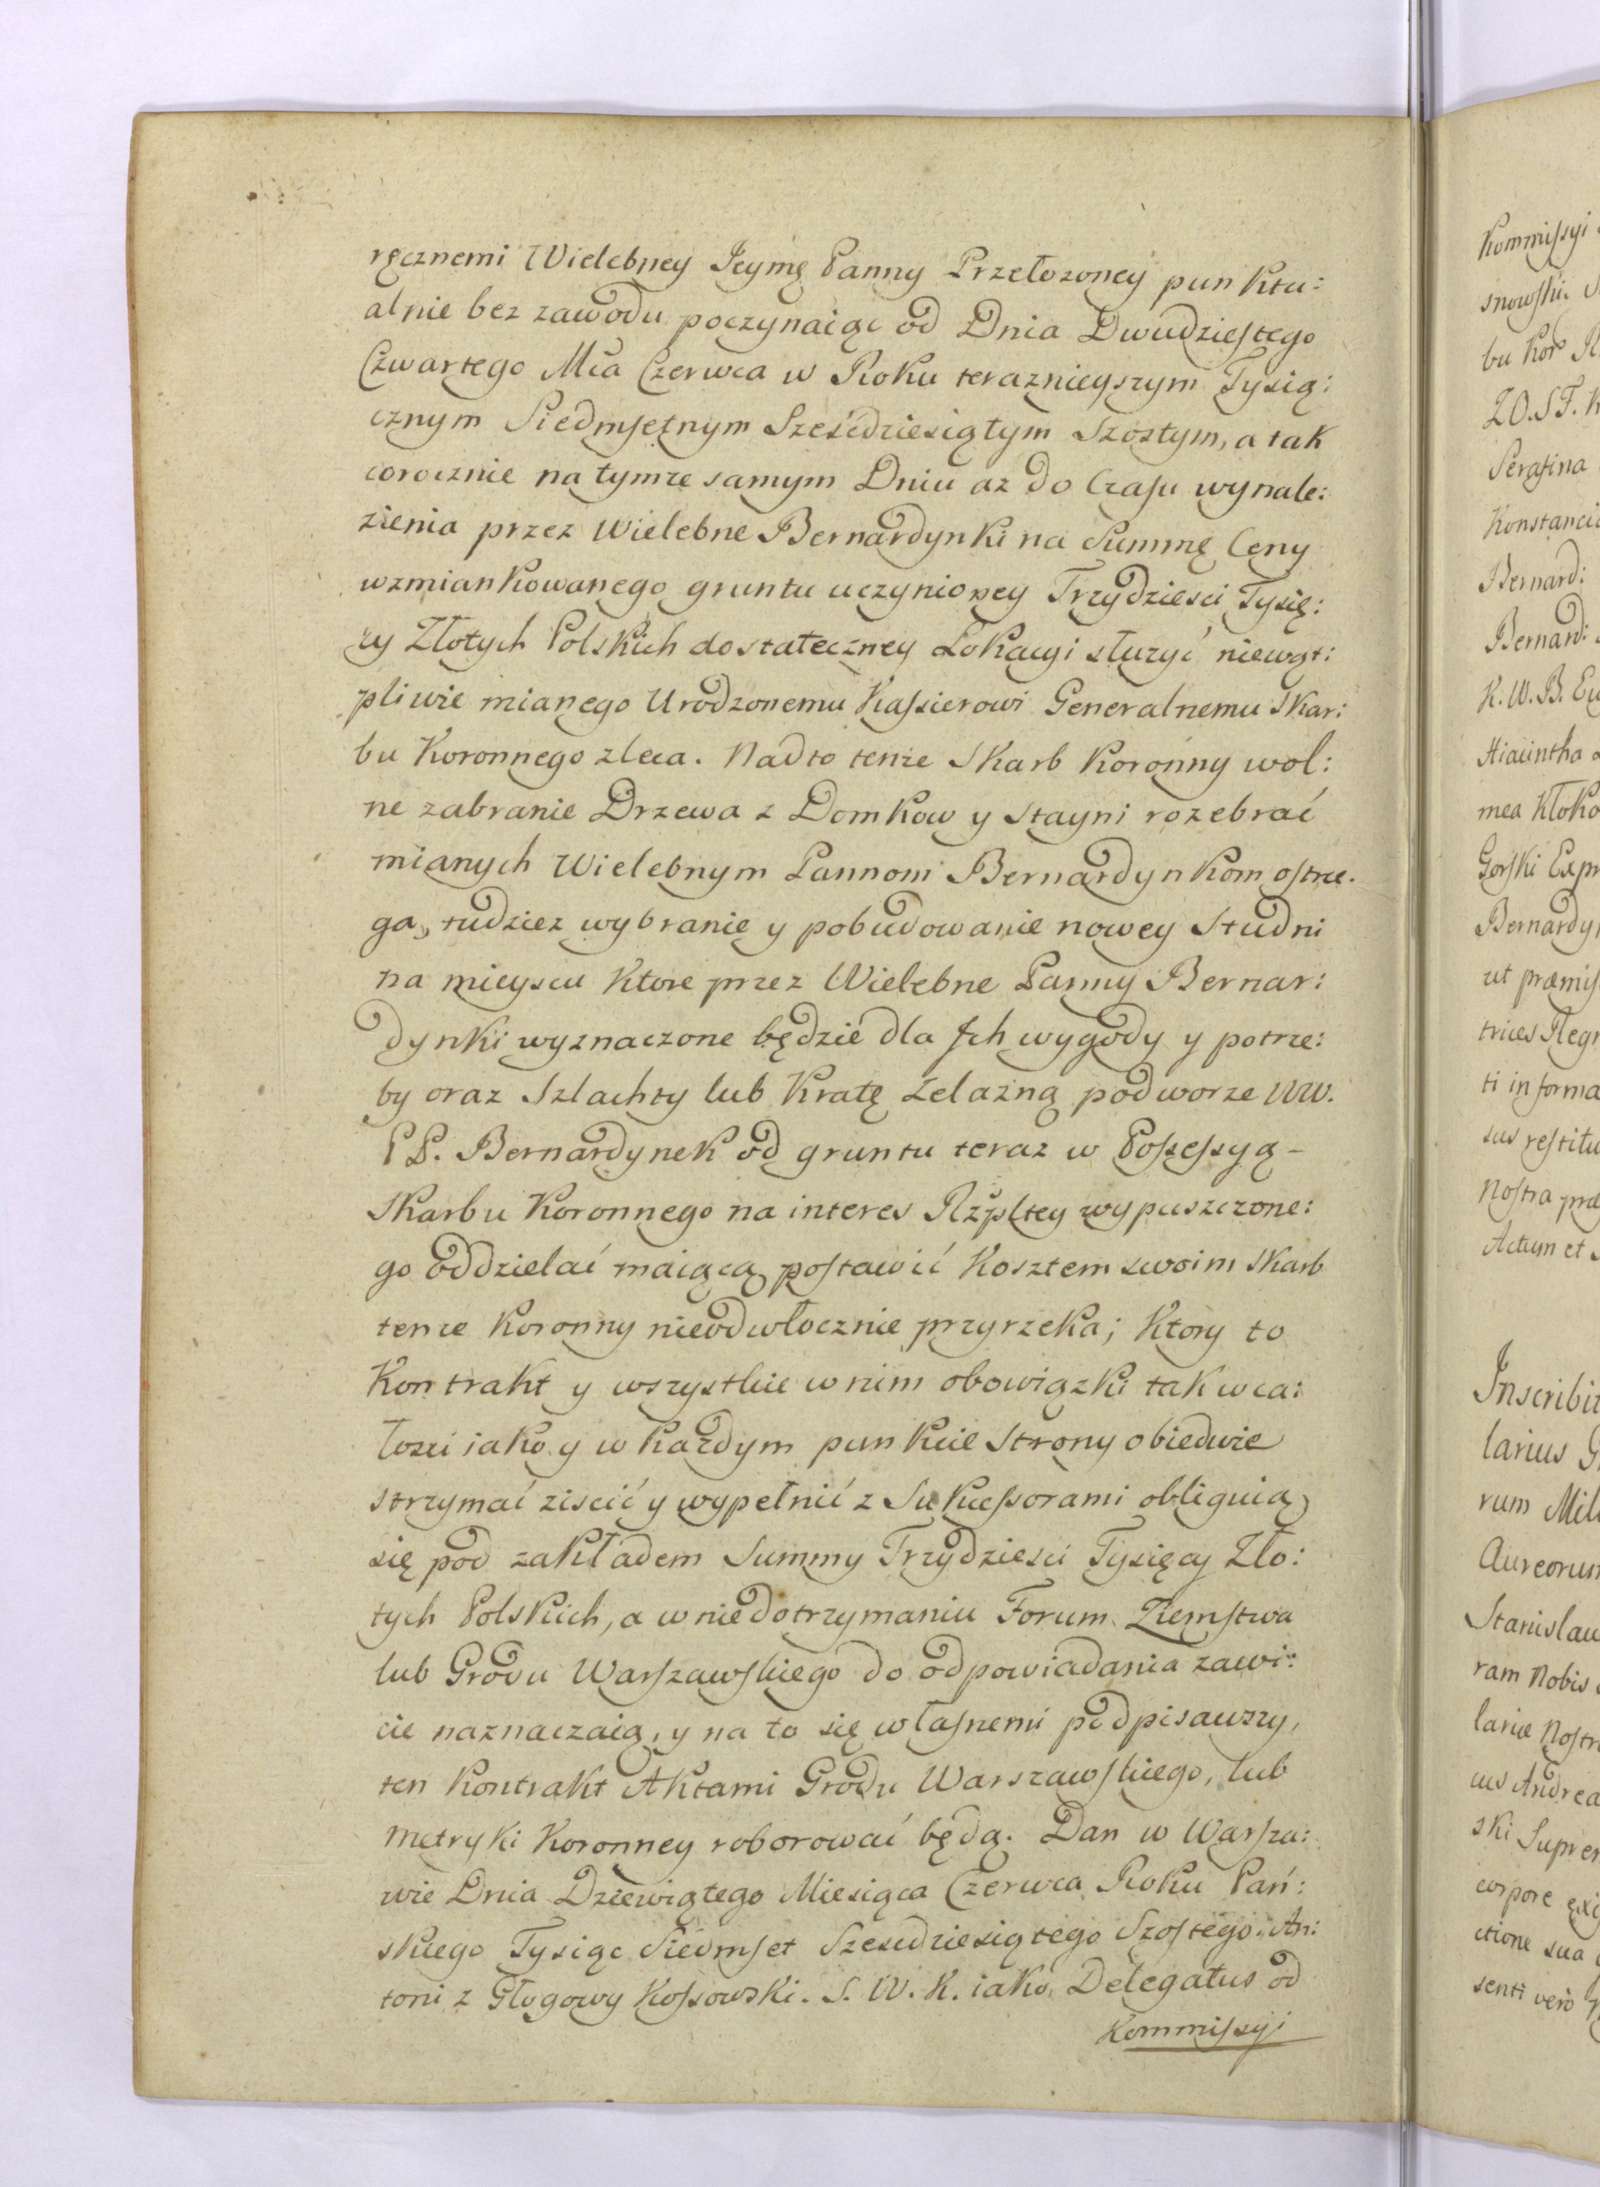 ręcznemi Wielebney Jeymę Panny Przełozoney punktu:
alnie bez zawodu poczynaiąc od Dnia Dwudziestego
Czwartego Mca Czerwca w Roku teraznieyszym Tysią:
cznym Siedmsetnym Sześćdziesiątym Szostym, a tak
corocznie na tymże samym Dniu az do Czasu wynale:
zienia przez Wielebne Bernardynki na Summę Ceny
wzmiankowanego gruntu uczynioney Trzydziesci Tysię:
cy Złotych Polskich dostateczney Lokacyi słuzyć niewąt:
pliwie mianego Urodzonemu Kassierowi Generalnemu Skar:
bu Koronnego zleca. Nadto tenże Skarb Koronny wol:
ne zabranie Drzewa z Domkow y Stayni rozebrać
mianych Wielebnym Pannom Bernardynkom ostrze.
ga, tudziez wybranie y pobudowanie nowey Studni
na mieyscu ktore przez Wielebne Panny Bernar:
dynki wyznaczone będzie dla Ich wygody y potrze:
by oraz Szlachty lub Kratę Zelazną podworze WW.
PP. Bernardynek od gruntu teraz w Possessyą –
Skarbu Koronnego na interes Rzpltey wypuszczone:
go oddzielać maiącą postawić Kosztem swoim Skarb
tenze Koronny nieodwłocznie przyrzeka; Ktory to
Kontrakt y wszystkie w nim obowiązki tak w ca:
łosci iako y w kazdym punkcie Strony obiedwie
strzymać ziscić y wypełnić z Sukcessorami obliguią
się pod zakładem Summy Trzydziesci Tysięcy Zło:
tych Polskich, a w niedotrzymaniu Forum Ziemstwa
lub Grodu Warszawskiego do odpowiadania zawi:
cie naznaczaią, y na to się własnemi podpisawszy,
ten Kontrakt Aktami Grodu Warszawskiego, lub
metryki Koronney roborować będą. Dan w Warsza:
wie Dnia Dziewiątego Miesiąca Czerwca Roku Pań:
skiego Tysiąc Siedmset Szesćdziesiątego Szostego. An:
toni z Głogowy Kossowski. S. W. K. iako Delegatus od
Kommissyi
Kommissyi
bu Kor
ZO. ST.
Serafina
Bernard:
Bernard:
K. W. B.
Hiacintha
mea
Gorski
Nostra
Actum et
Inscribit
larius
rum
Aureorum
ram Nobis
larice
cus
ski
corpore
ctione sua
senti vero